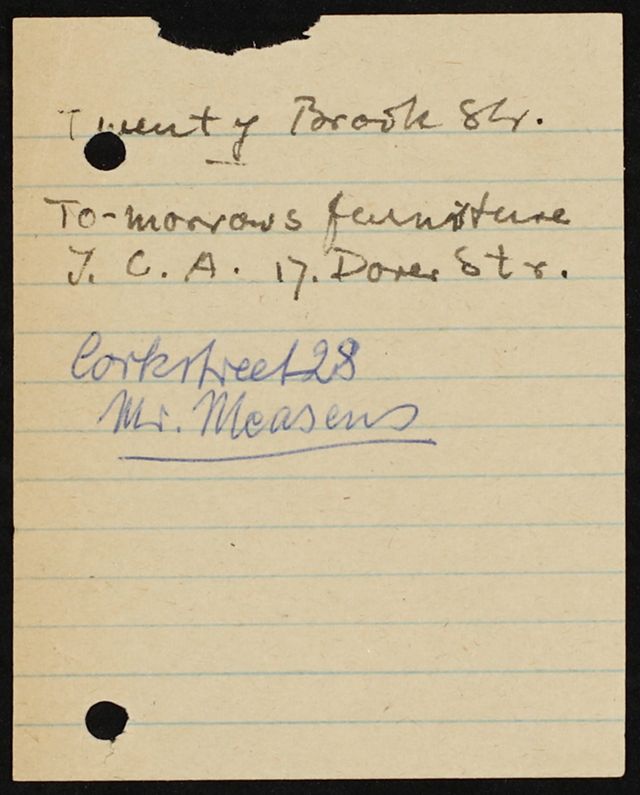 Twenty Brook Str.
To-morrows furniture
I. C. A. 17. Dover Str.
Corkstreet 28
Mr. Measens